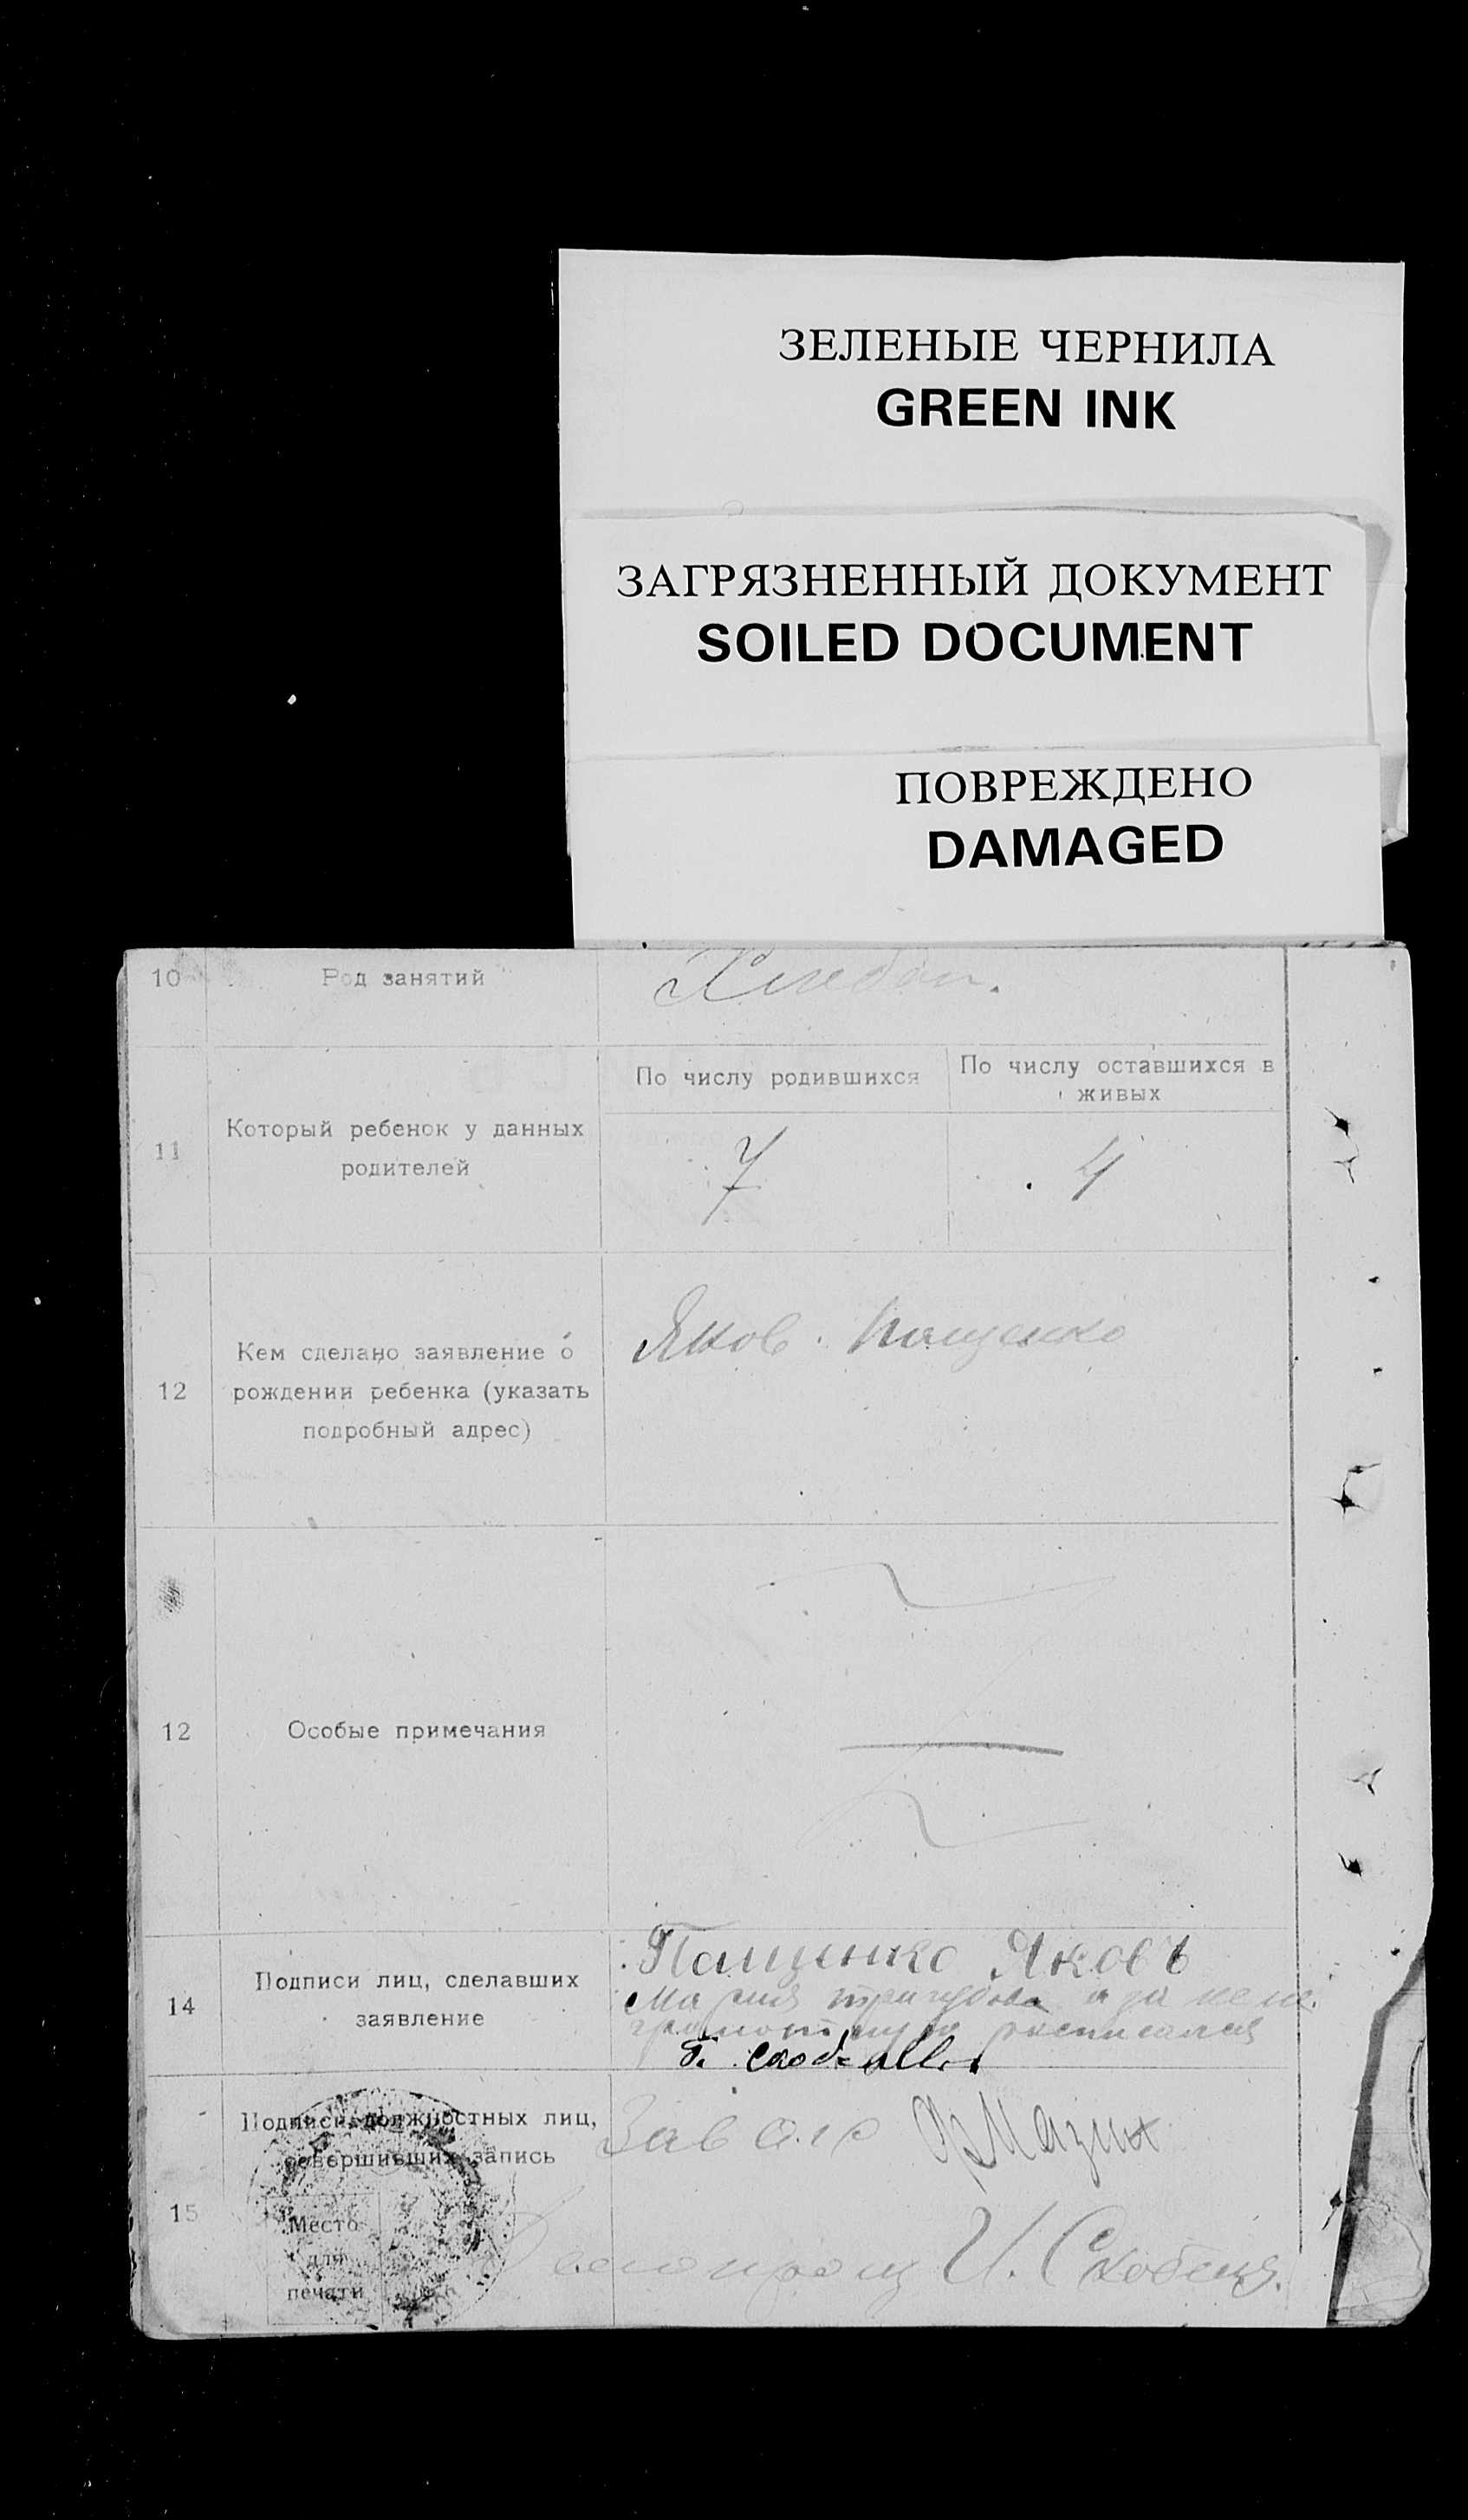 ЗЕЛЕНЫЕ ЧЕРНИЛА
GREEN INK
ЗАГРЯЗНЕННЫЙ ДОКУМЕНТ
SOILED DOCUMENT
ПОВРЕЖДЕНО
DAMAGED
10 Род занятий
По числу родившихся
По числу оставшихся в живых
11
Который ребенок у данных
родителей
7 4
Яков Пащенко
Кем сделано заявление о
12 рождении ребенка (указать
подробный адрес)
12 Особые примечания
Пащинко Яковъ
Подписи лиц, сделавших
14
заявление
Мария а за не
расписался
Подписи должностных лиц,
совершивших запись
15
Место
для
печати
И.